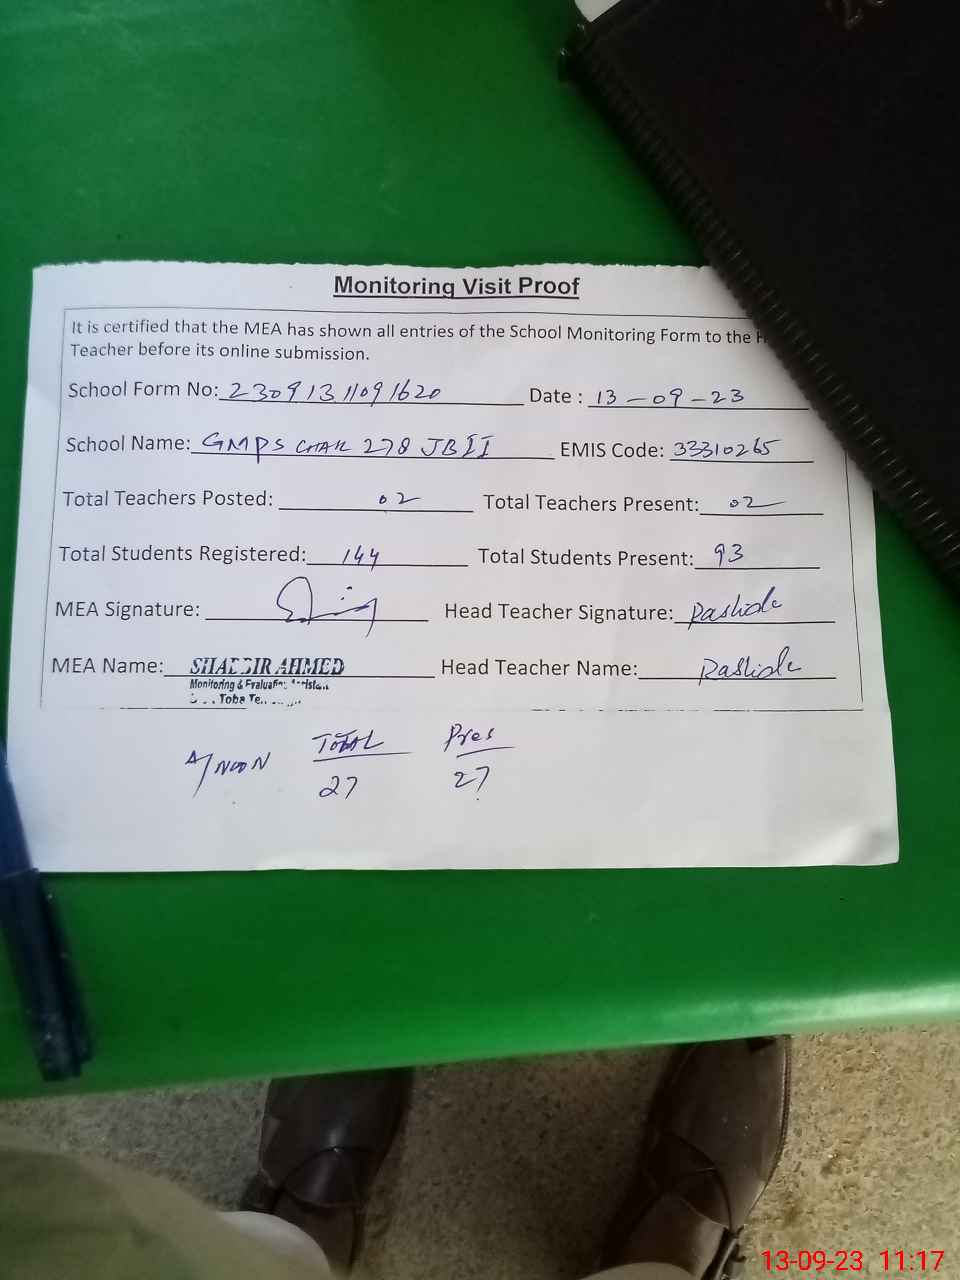 Monitoring Visit Proof
It is certified that the MEA has shown all entries of the School Monitoring Form to the H
Teacher before its online submission.
School Form No: 230913 11091620 Date : 13-09-23
School Name: GMPS CHAK 278 JB II EMIS Code: 33310265
Total Teachers Posted: 02 Total Teachers Present: 02
Total Students Registered: 144 Total Students Present: 93
MEA Signature: Head Teacher Signature: Rashida
MEA Name: SHABBIR AHMED Head Teacher Name: Rashida
Monitoring & Evaluation
Toba Te
A/NOON TOTAL Pres
27 27
13-09-23 11:17